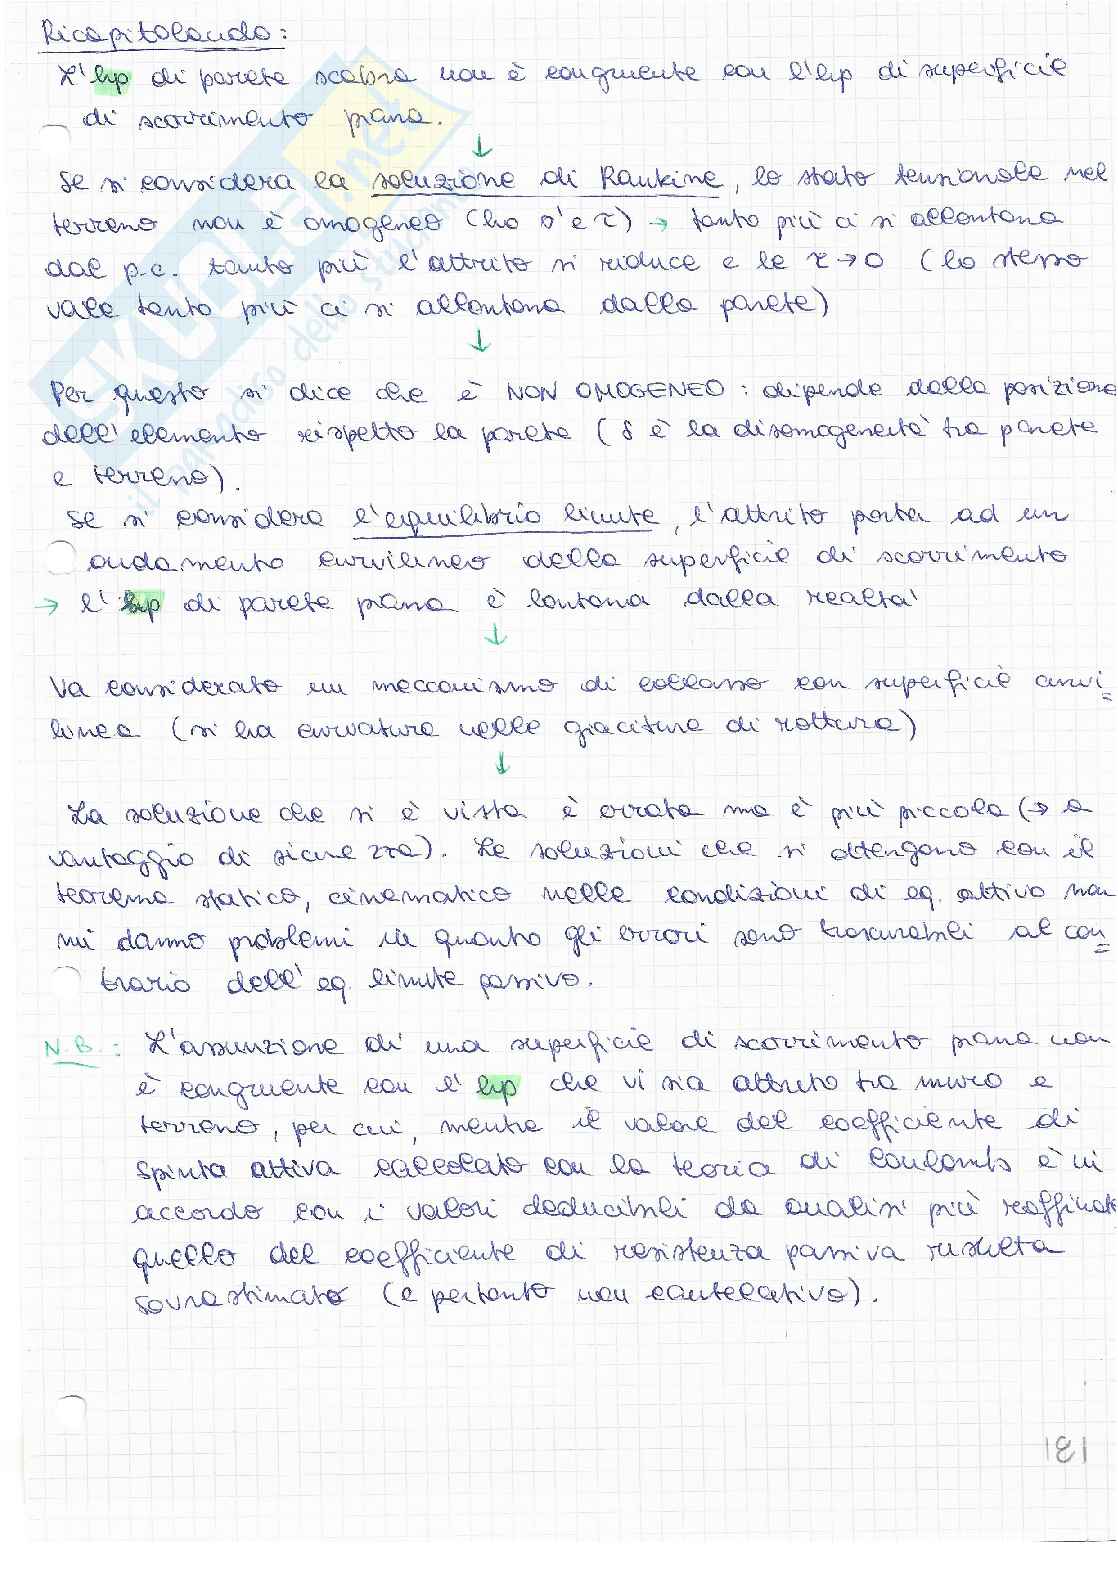 Ricapitolando:
L'hp di parete scabra non è congruente con l'hp di superficie
di scorrimento piana.
↓
Se si considera la soluzione di Rankine, lo stato tensionale nel
terreno non è omogeneo (ho σ' e τ) → tanto più ci si allontana
dal p.c. tanto più l'attrito si riduce e le τ→0 (lo stesso
vale tanto più ci si allontana dalla parete)
↓
Per questo si dice che è NON OMOGENEO: dipende dalla posizione
dell'elemento rispetto la parete (δ è la disomogeneità tra parete
e terreno).
Se si considera l'equilibrio limite, l'attrito porta ad un
andamento curvilineo della superficie di scorrimento
→ l'hp di parete piana è lontana dalla realtà
↓
Va considerato un meccanismo di collasso con superficie curvi=
linea (si ha curvatura nelle giaciture di rottura)
↓
La soluzione che si è vista è errata ma è più piccola (→ a
vantaggio di sicurezza). Le soluzioni che si ottengono con il
teorema statico, cinematico nelle condizioni di eq. attivo non
mi danno problemi in quanto gli errori sono trascurabili al con=
trario dell'eq. limite passivo.
N.B.: L'assunzione di una superficie di scorrimento piana non
è congruente con l'hp che vi sia attrito tra muro e
terreno, per cui, mentre il valore del coefficiente di
spinta attiva calcolato con la teoria di Coulomb è in
accordo con i valori deducibili da analisi più raffinate
quello del coefficiente di resistenza passiva risulta
sovrastimato (e pertanto non cautelativo).
181
skuola.net
il paradiso dello studente